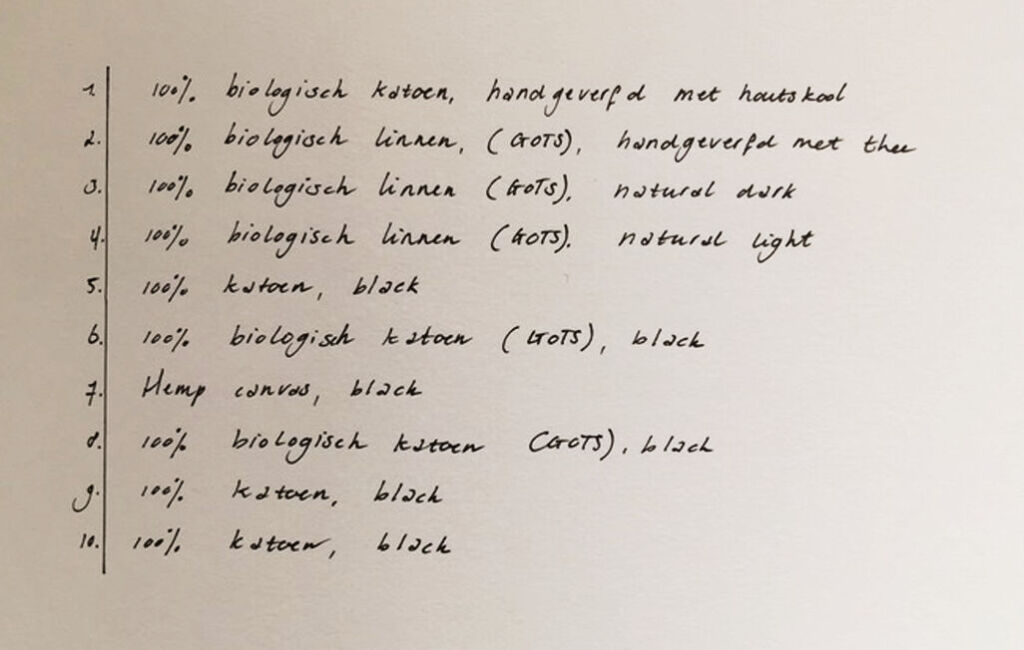 1. 100% biologisch katoen, handgeverfd met houtskool
2. 100% biologisch linnen, (GOTS), handgeverfd met thee
3. 100% biologisch linnen (GOTS). natural dark
4. 100% biologisch linnen (GOTS). natural light
5. 100% katoen, black
6. 100% biologisch katoen (GOTS), black
7. Hemp canvas, black
8. 100% biologisch katoen (GOTS), black
9. 100% katoen, black
10. 100% katoen, black